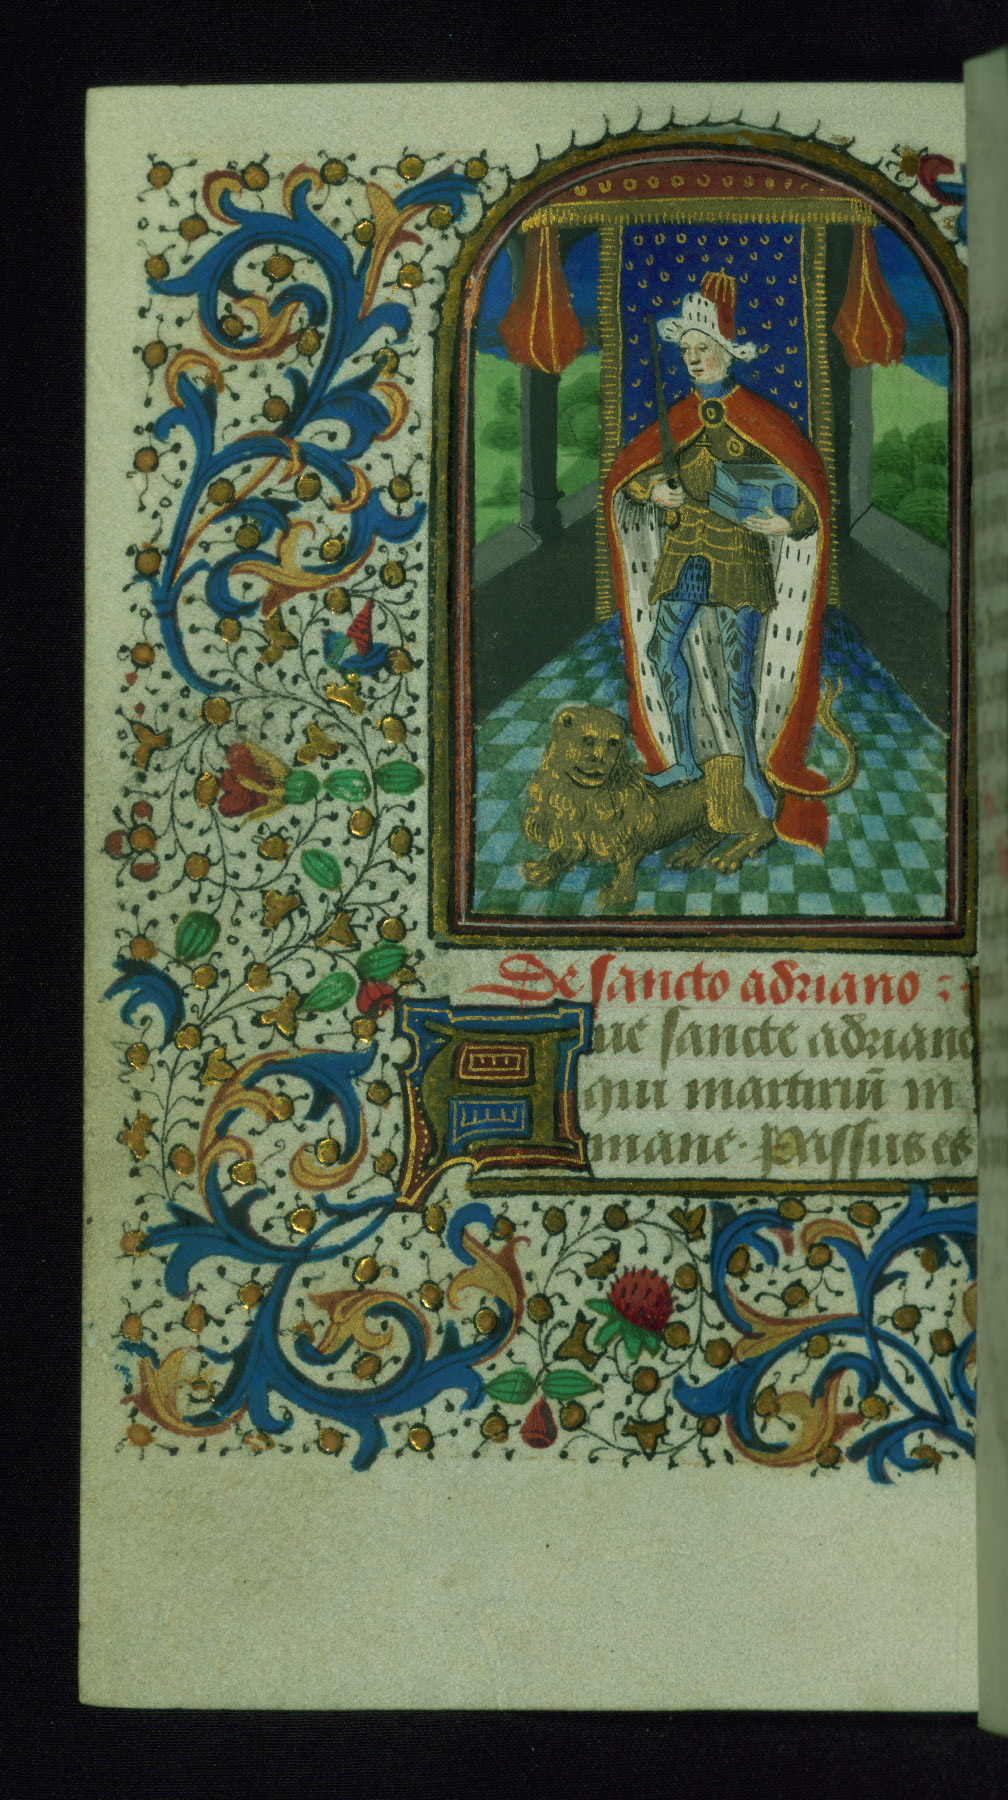 De sancto adriano :
Aue sancte adriane
qui martiriū in
mane · Passus es